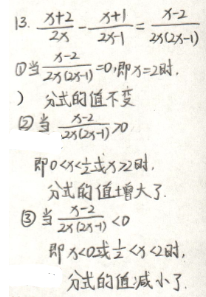 13. (x+2)/2x - (x+1)/(2x-1) = (x-2)/(2x(2x-1))
①当 (x-2)/(2x(2x-1)) =0,即x=2时,
) 分式的值不变
②当 (x-2)/(2x(2x-1)) >0
即0<x<1/2或x>2时,
分式的值增大了.
③当 (x-2)/(2x(2x-1)) <0
即x<0或1/2<x<2时,
分式的值减小了.